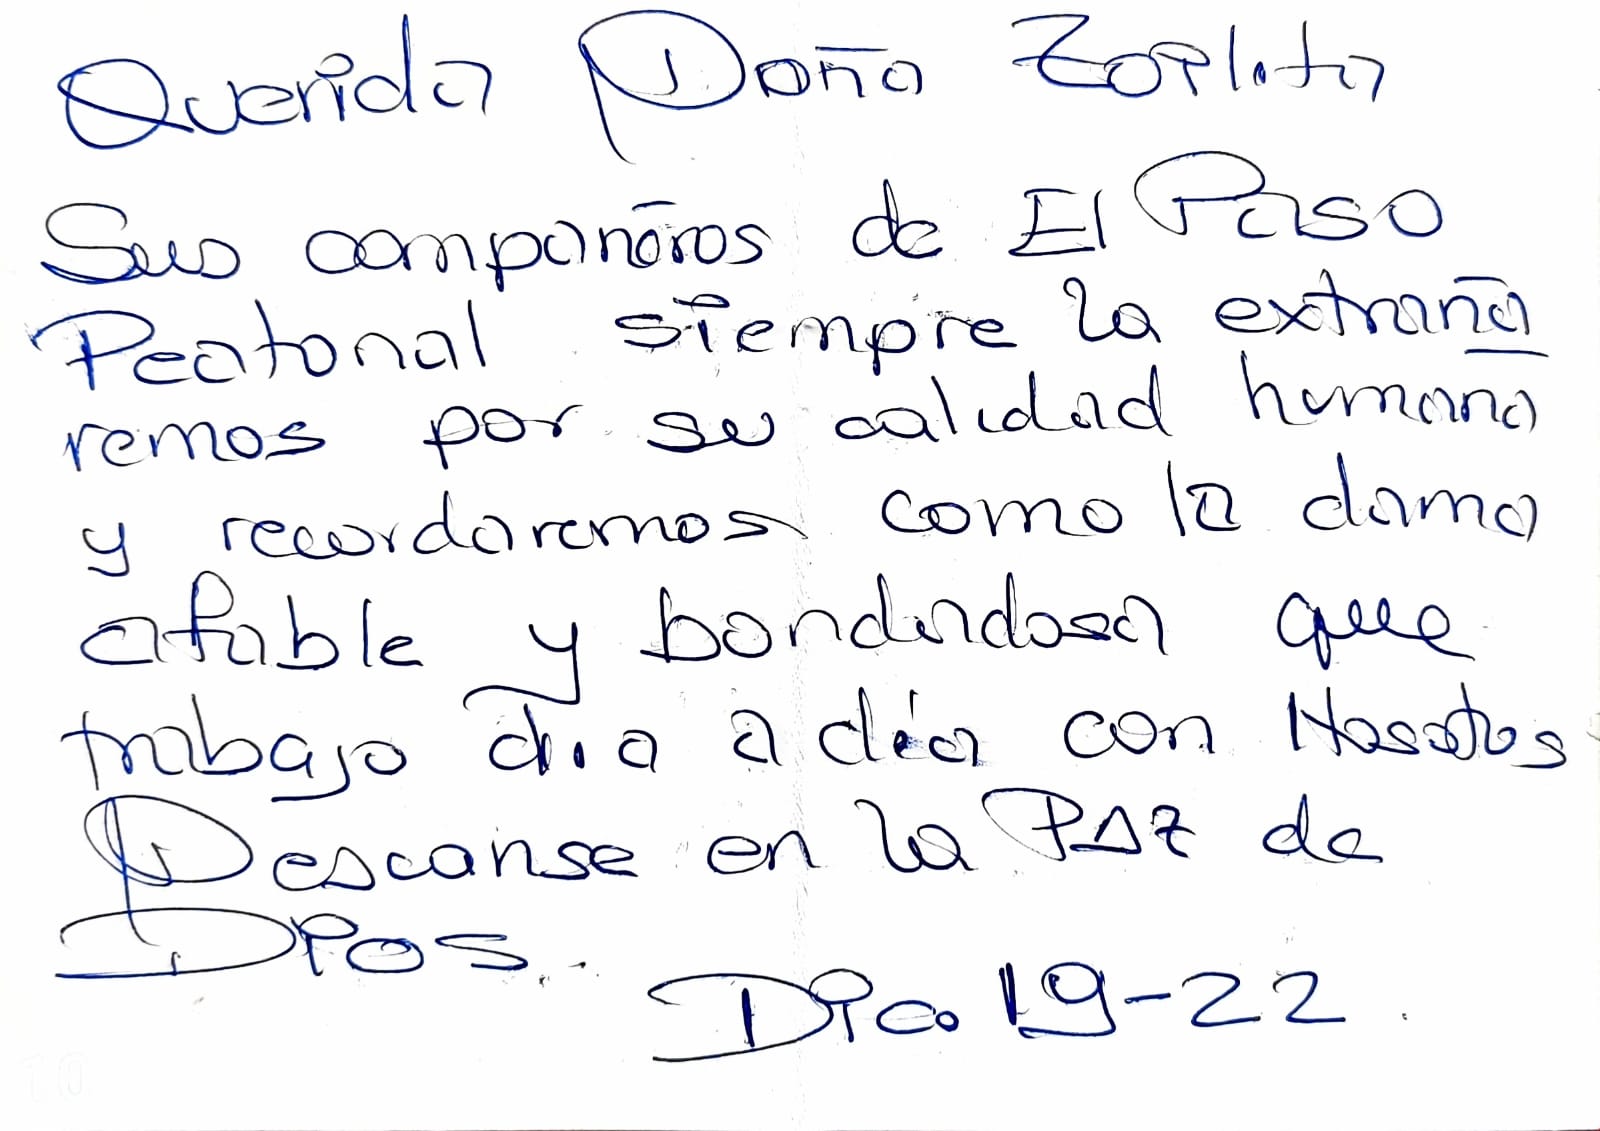 Querida Doña Zoilita
Sus compañeros de El Paso
Peatonal siempre la extraña
remos por su calidad humana
y recordaremos como la dama
afable y bondadosa que
trabajo dia a día con Nosotros
Descanse en la PAZ de
Dios..
Dic. 19-22.